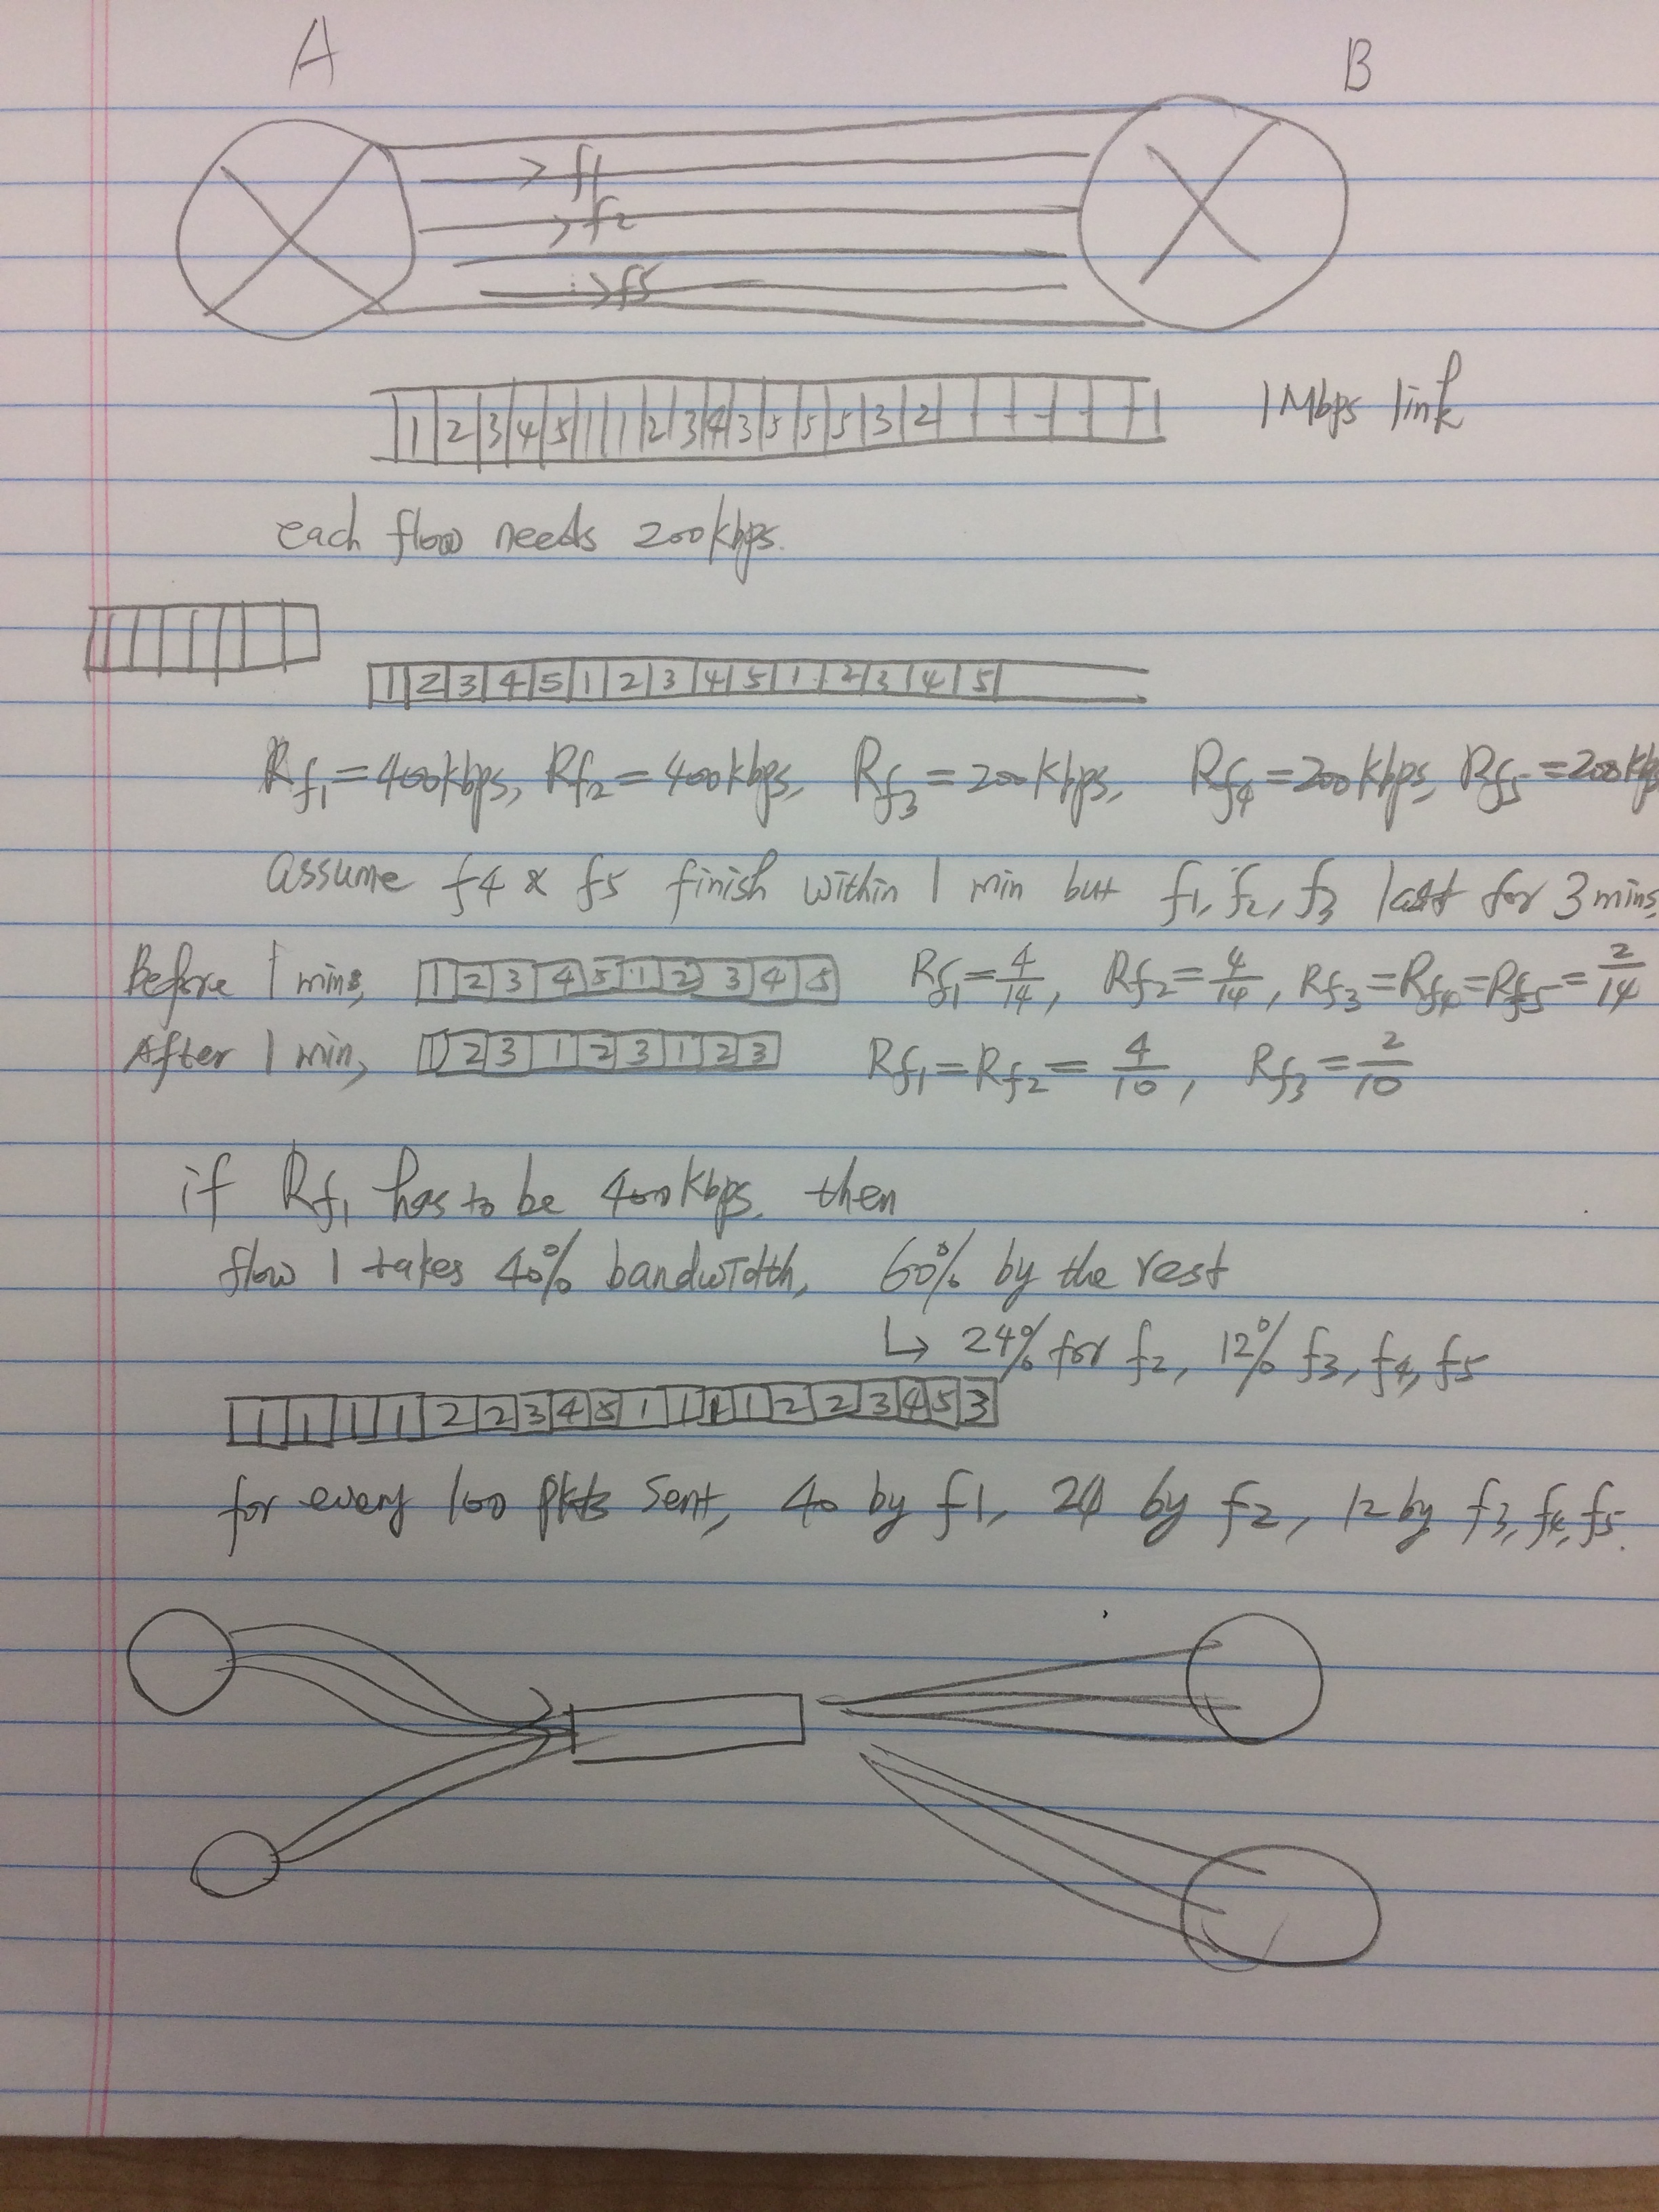 A B
f1
f2
f5
1 2 3 4 5 1 1 2 3 4 3 5 5 5 3 2 1Mbps link
each flow needs 200kbps.
1 2 3 4 5 1 2 3 4 5 1 2 3 4 5
Rf1 = 400kbps, Rf2 = 400kbps, Rf3 = 200kbps, Rf4 = 200kbps, Rf5 = 200kbp
assume f4 & f5 finish within 1 min but f1, f2, f3 last for 3 mins.
Before 1 mins, 1 2 3 4 5 1 2 3 4 5 Rf1 = 4/14, Rf2 = 4/14, Rf3 = Rf4 = Rf5 = 2/14
After 1 min, 1 2 3 1 2 3 1 2 3 Rf1 = Rf2 = 4/10, Rf3 = 2/10
if Rf1 has to be 400kbps, then
flow 1 takes 40% bandwidth, 60% by the rest
↳ 24% for f2, 12% f3, f4, f5
1 1 1 1 2 2 3 4 5 1 1 1 1 2 2 3 4 5 3
for every 100 pkts sent, 40 by f1, 24 by f2, 12 by f3, f4, f5.